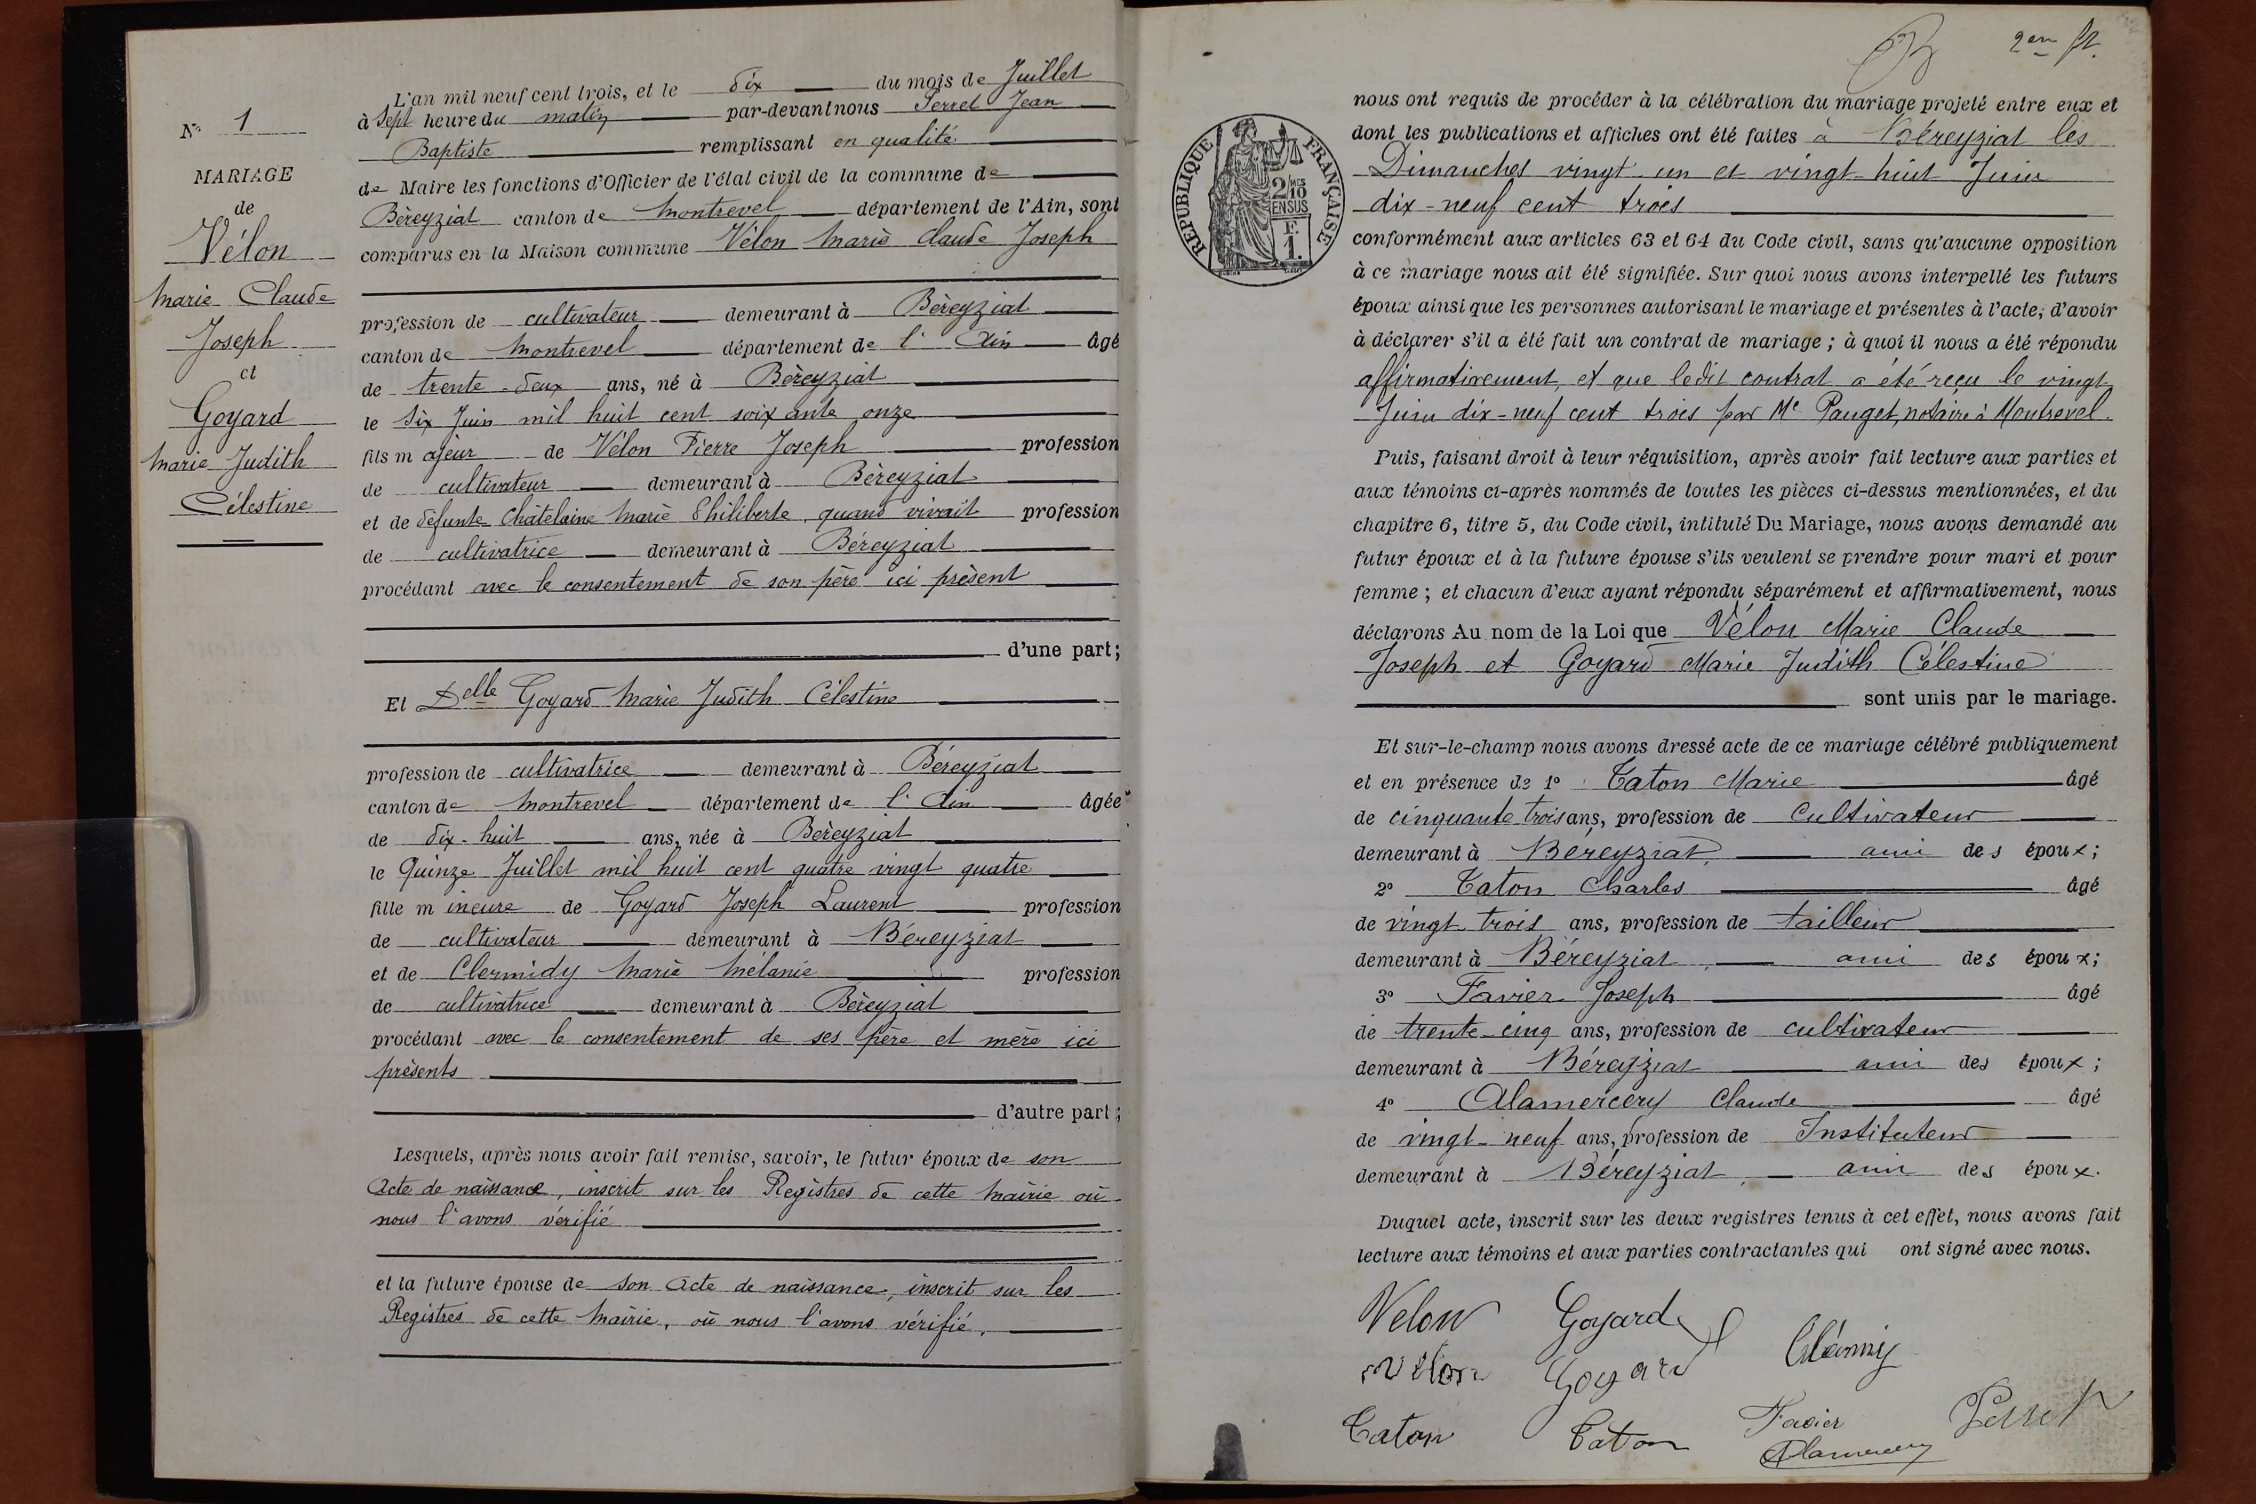 N° 1
MARIAGE
de
Vélon
Marie Claude
Joseph
et
Goyard
Marie Judith
Célestine
L'an mil neuf cent trois, et le dix du mois de Juillet
à Sept heure du matin par-devant nous Perret Jean
Baptiste remplissant en qualité
de Maire les fonctions d'Officier de l'état civil de la commune de
Béreyziat canton de Montrevel département de l'Ain, sont
comparus en la Maison commune Vélon Marie Claude Joseph
profession de cultivateur demeurant à Béreyziat
canton de Montrevel département de l'Ain âgé
de trente-deux ans, né à Béreyziat
le Six Juin mil huit cent soixante onze
fils majeur de Vélon Pierre Joseph profession
de cultivateur demeurant à Béreyziat
et de défunte Châtelaine Marie Philiberte, quand vivait profession
de cultivatrice demeurant à Béreyziat
procédant avec le consentement de son père ici présent
d'une part;
Et Delle Goyard Marie Judith Célestine
profession de cultivatrice demeurant à Béreyziat
canton de Montrevel département de l'Ain âgée
de dix-huit ans, née à Béreyziat
le Quinze Juillet mil huit cent quatre vingt quatre
fille mineure de Goyard Joseph Laurent profession
de cultivateur demeurant à Béreyziat
et de Clermidy Marie Mélanie profession
de cultivatrice demeurant à Béreyziat
procédant avec le consentement de ses père et mère ici
présents
d'autre part;
Lesquels, après nous avoir fait remise, savoir, le futur époux de son
Acte de naissance, inscrit sur les Registres de cette Mairie où
nous l'avons vérifié
et la future épouse de son Acte de naissance, inscrit sur les
Registres de cette Mairie, où nous l'avons vérifié.
2en
RÉPUBLIQUE FRANÇAISE
2/10
EN SUS
F.
1.
nous ont requis de procéder à la célébration du mariage projeté entre eux et
dont les publications et affiches ont été faites à Béreyziat les
Dimanches vingt-un et vingt-huit Juin
dix-neuf cent trois
conformément aux articles 63 et 64 du Code civil, sans qu'aucune opposition
à ce mariage nous ait été signifiée. Sur quoi nous avons interpellé les futurs
époux ainsi que les personnes autorisant le mariage et présentes à l'acte, d'avoir
à déclarer s'il a été fait un contrat de mariage; à quoi il nous a été répondu
affirmativement, et que ledit contrat a été reçu le vingt
Juin dix-neuf cent trois par Me Pauget, notaire à Montrevel.
Puis, faisant droit à leur réquisition, après avoir fait lecture aux parties et
aux témoins ci-après nommés de toutes les pièces ci-dessus mentionnées, et du
chapitre 6, titre 5, du Code civil, intitulé Du Mariage, nous avons demandé au
futur époux et à la future épouse s'ils veulent se prendre pour mari et pour
femme; et chacun d'eux ayant répondu séparément et affirmativement, nous
déclarons Au nom de la Loi que Vélon Marie Claude
Joseph et Goyard Marie Judith Célestine
sont unis par le mariage.
Et sur-le-champ nous avons dressé acte de ce mariage célébré publiquement
et en présence de 1° Caton Marie âgé
de cinquante-trois ans, profession de Cultivateur
demeurant à Béreyziat, ami des époux;
2° Caton Charles âgé
de vingt trois ans, profession de tailleur
demeurant à Béreyziat, ami des époux;
3° Favier Joseph âgé
de trente-cinq ans, profession de cultivateur
demeurant à Béreyziat ami des époux;
4° Alamercery Claude âgé
de vingt-neuf ans, profession de Instituteur
demeurant à Béreyziat, ami des époux.
Duquel acte, inscrit sur les deux registres tenus à cet effet, nous avons fait
lecture aux témoins et aux parties contractantes qui ont signé avec nous.
Velon Goyard
Velon Goyard
Caton Caton Favier Perret
Alamercery